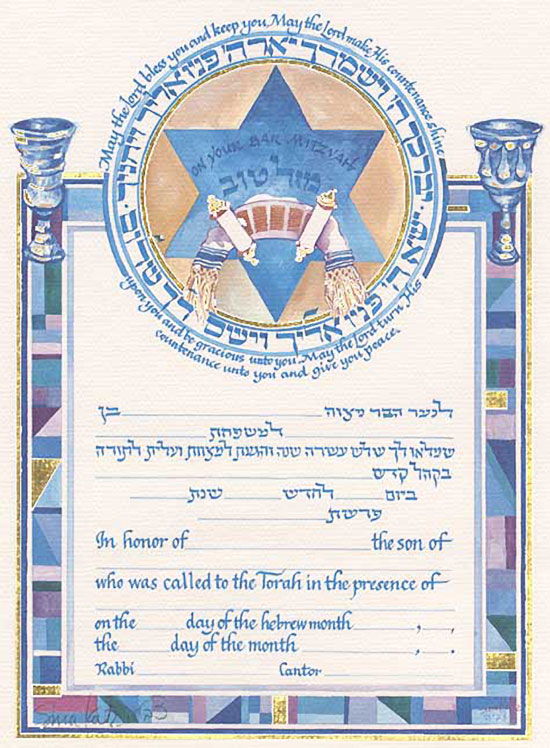 May the Lord bless you and keep you. May the Lord make His countenance shine
upon you and be gracious unto you. May the Lord turn His
countenance unto you and give you peace.
יברכך ה' וישמרך יאר ה' פניו אליך ויחנך ישא ה' פניו אליך וישם לך שלום
ON YOUR BAR MITZVAH
מזל טוב
לנער הבר מצוה ____ בן
____ למשפחת ____
שמלאו לך שלש עשרה שנה והגעת למצוות ועלית לתורה
בקהל קדש ____
ביום ____ לחדש ____ שנת ____
פרשת ____
In honor of ____ the son of
who was called to the Torah in the presence of
on the ____ day of the hebrew month ____, __.
the ____ day of the month ____, __.
Rabbi ____ Cantor ____